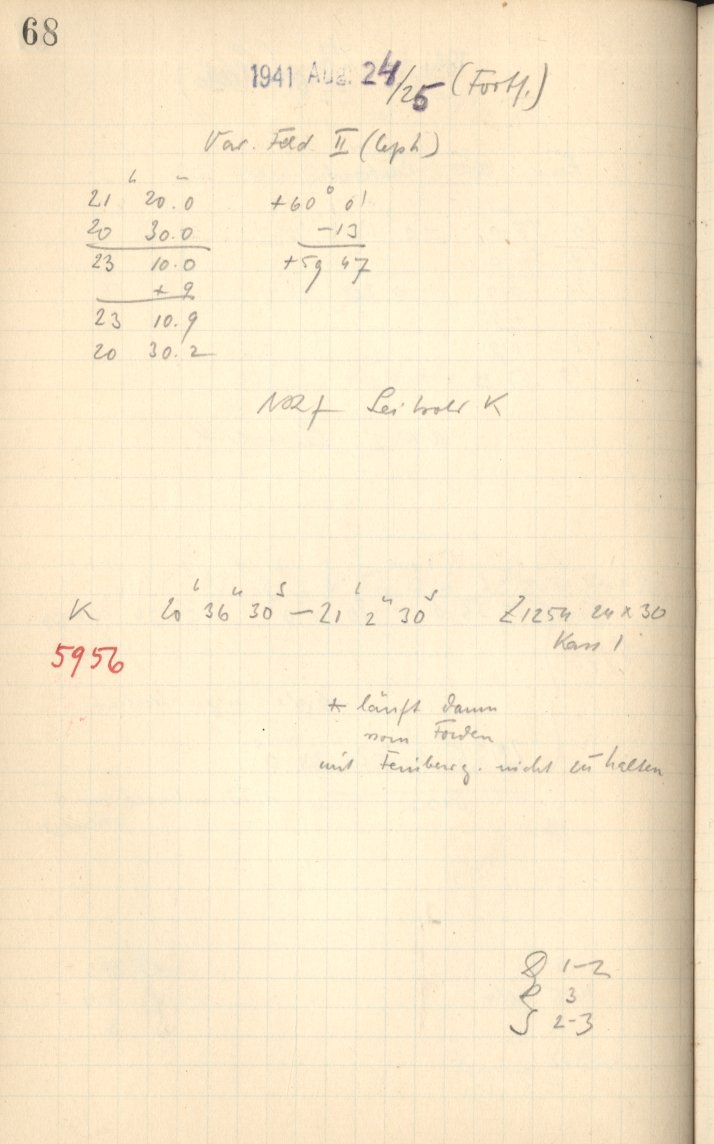 68
1941 Aug. 24/25 (Forts.)
Var. Feld II (Ceph)
21ʰ 20.0ᵐ +60° 0'
20 30.0 -13
23 10.0 +59 47
+ 9
23 10.9
20 30.2
K
K 20ʰ36ᵐ30ˢ — 21ʰ2ᵐ30ˢ Z1254 24x30
5956 Kass 1
* läuft dann
vom Faden
mit Feinbeweg. nicht zu halten
1-2
3
S 2-3